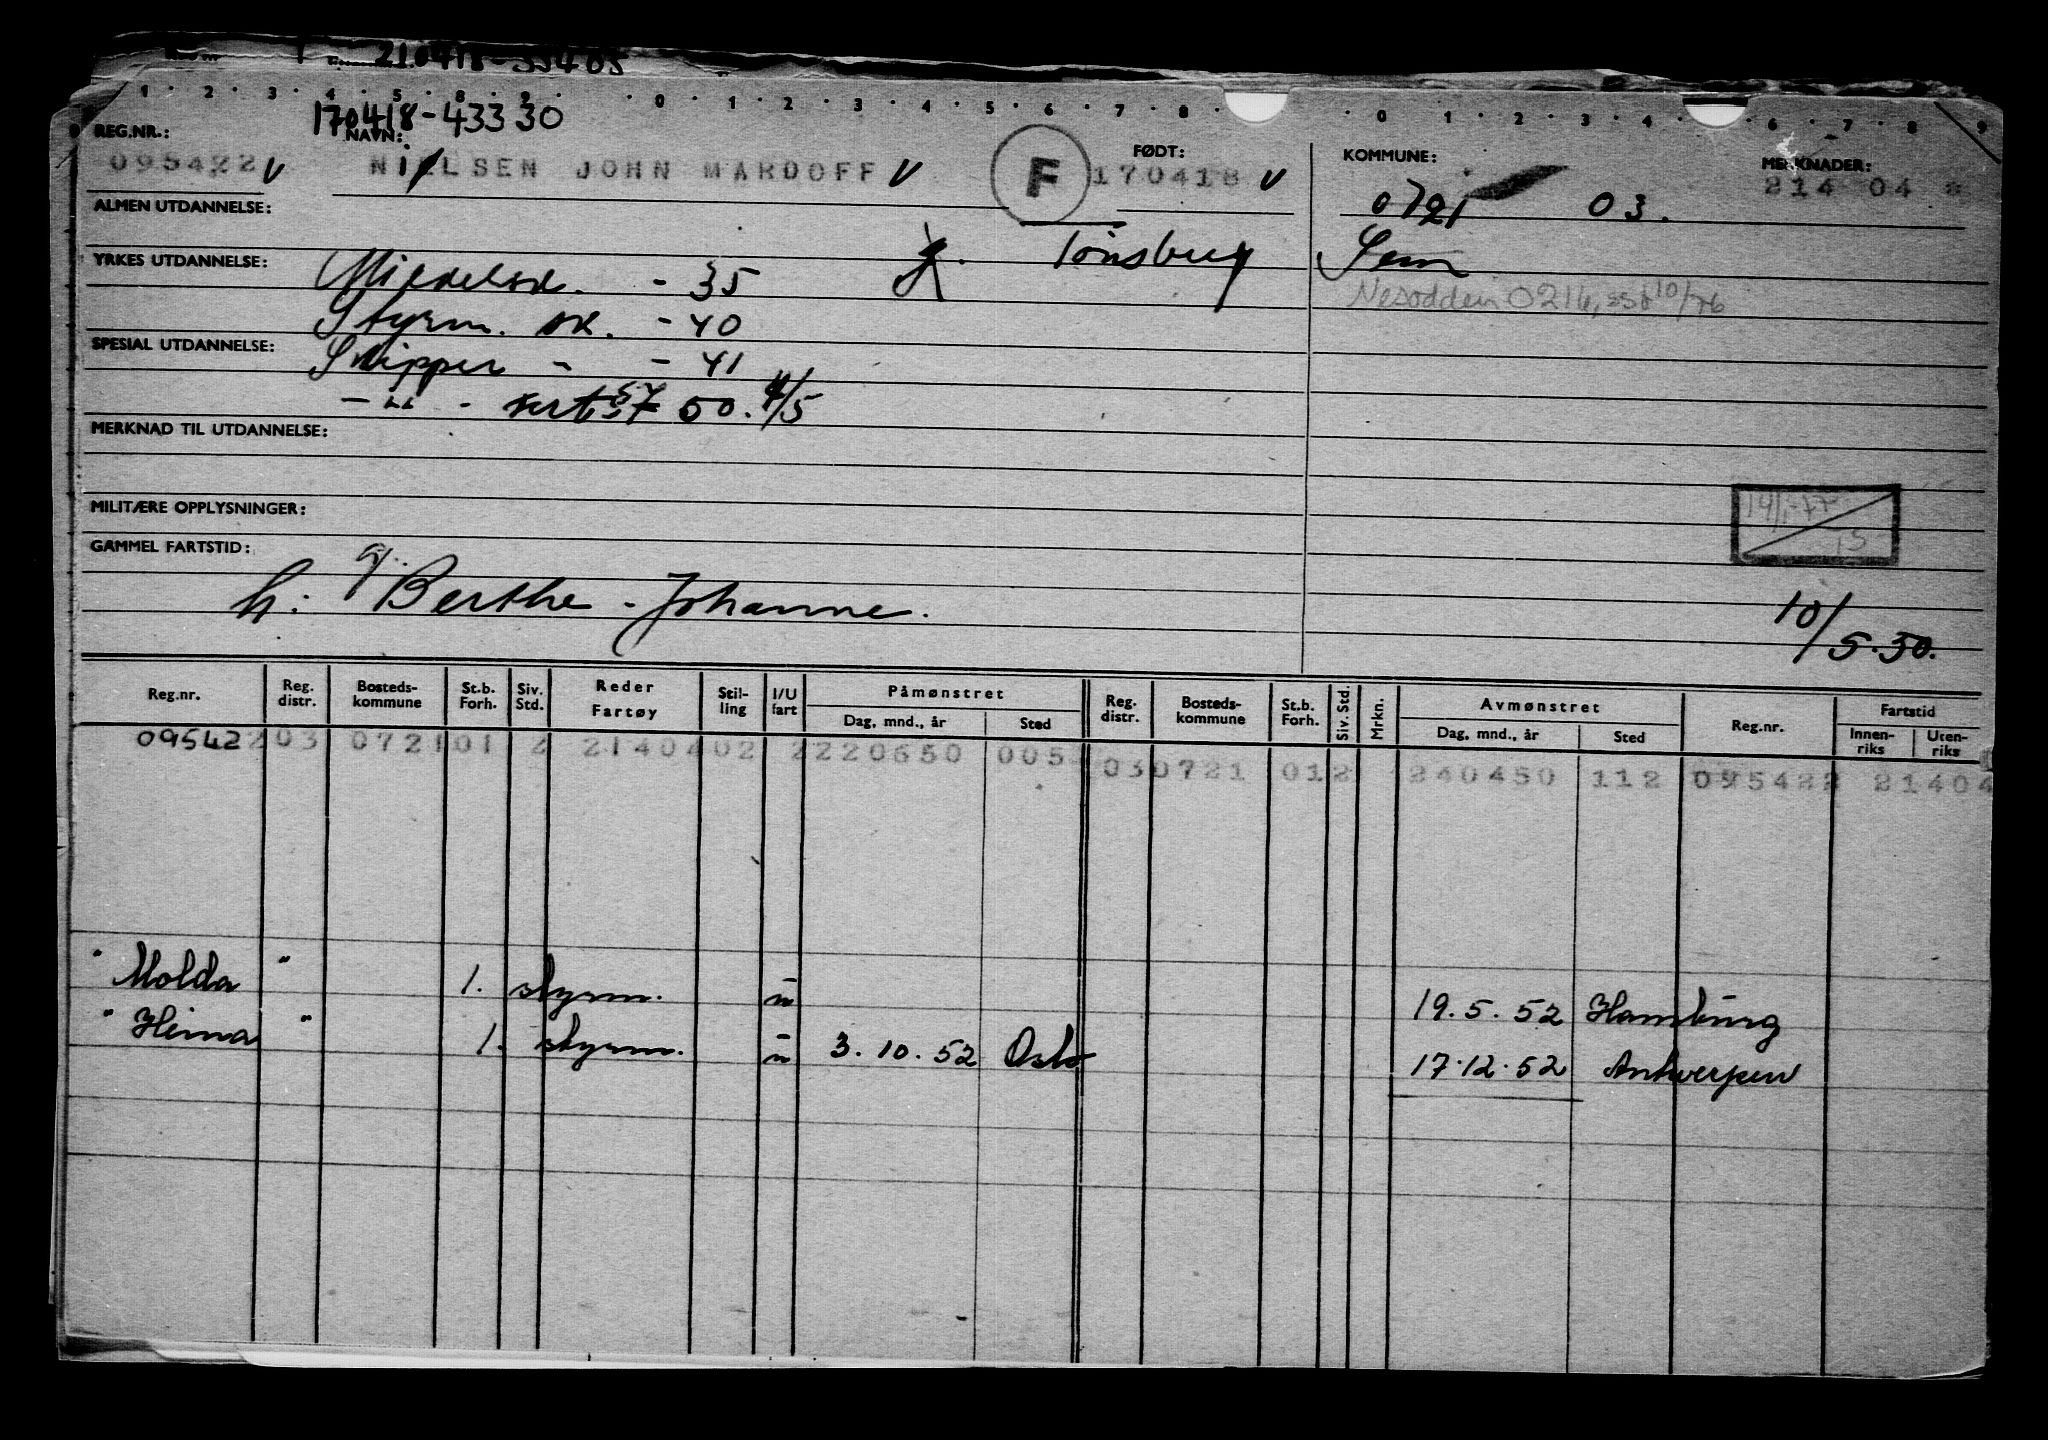 210418-
1 2 3 4 5 8 9 0 1 2 3 4 5 6 7 8 0 1 2 3 4 6 7 8 9
170418-43330
REG.NR.: NAVN: FØDT: KOMMUNE: MERKNADER:
095422 V NIELSEN JOHN MARDOFF V F 170418 V 0721 03. 214 04
ALMEN UTDANNELSE:
Tønsberg Sem
YRKES UTDANNELSE: Middelsk. - 35
Nesodden 0216, 10/76
Styrm. sk. - 40
SPESIAL UTDANNELSE: Skipper - - 41
- " - sert 57 50. 4/5
MERKNAD TIL UTDANNELSE:
MILITÆRE OPPLYSNINGER:
14/1-77
15
GAMMEL FARTSTID:
h: g. Berthe-Johanne. 10/5.50.
Reg.nr. Reg. distr. Bosteds-kommune St.b. Forh. Siv. Std. Reder Fartøy Stil-ling I/U fart Påmønstret Dag, mnd., år Sted Reg. distr. Bosteds-kommune St.b. Forh. Siv. Std. Mrkn. Avmønstret Dag, mnd., år Sted Reg.nr. Fartstid Innen-riks Uten-riks
095422 03 0721 01 2 21404 02 2 220650 005 03 0721 01 2 240450 112 095422 21404
" Molda " 1. styrm. u 19.5.52 Hamburg
" Hema " 1. styrm. u 3.10.52 Oslo 17.12.52 Antwerpen